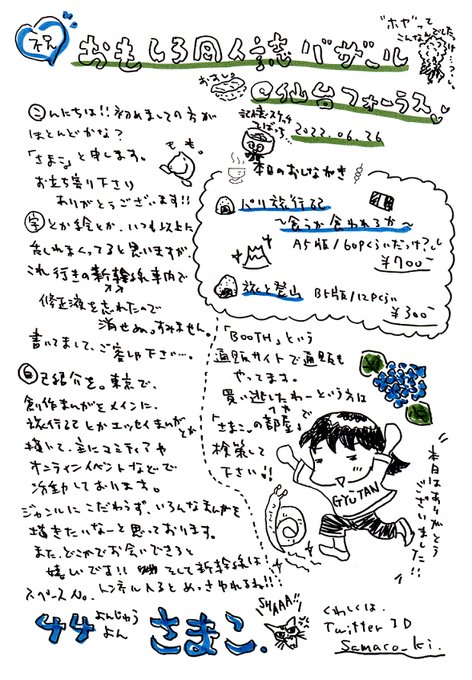 "ホヤ"って
こんなんでした。
は…つし。
祝
おもしろ同人誌バザール
@仙台フォーラス
記憶スケッチ
こばっち…
2022.06.26
こんにちは!!初めましての方が
ほとんどかな?
「さまこ」と申します。
お立ち寄り下さり
ありがとうございます!!
もも。
本日のおしながき
パリ旅行記
〜食うか食われるか〜
A5版/60pくらいだっけ?
¥700-
弟と登山
B5版/12Pくらい
¥300-
字とか絵とか、いつも以上に
乱れまくってると思いますが、
これ行きの新幹線車内で
修正液を忘れたので
消せぬ。すみません。
書いてまして、ご容赦下さい…。
「BOOTH」という
通販サイトで通販も
やってます。
買い逃したわーという方は
「さまこの部屋」で
へや
検索して
下さい!!
自己紹介を。東京で、
創作まんがをメインに、
旅行記とかエッセイまんがとか
描いて、主にコミティアや
オンラインイベントなどで
活動しております。
ジャンルにこだわらず、いろんなまんがを
描きたいなーと思っております。
また、どこかでお会いできると
嬉しいです!! そして新幹線は
トンネル入るとめっさゆれるね!!
GYUTAN
本日はありがとう
ございました!!
スペースNo.
44
よんじゅう
よん
さまこ.
SHAAA!!
くわしくは、
Twitter ID
Samaco_ki.